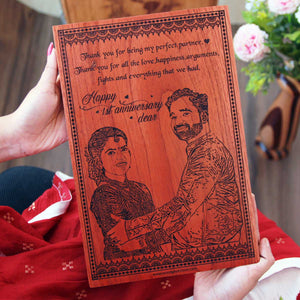 Thank you for being my perfect partner ♥
Thank you for all the love, happiness, arguments,
fights and everything that we had.
Happy
1st anniversary
dear